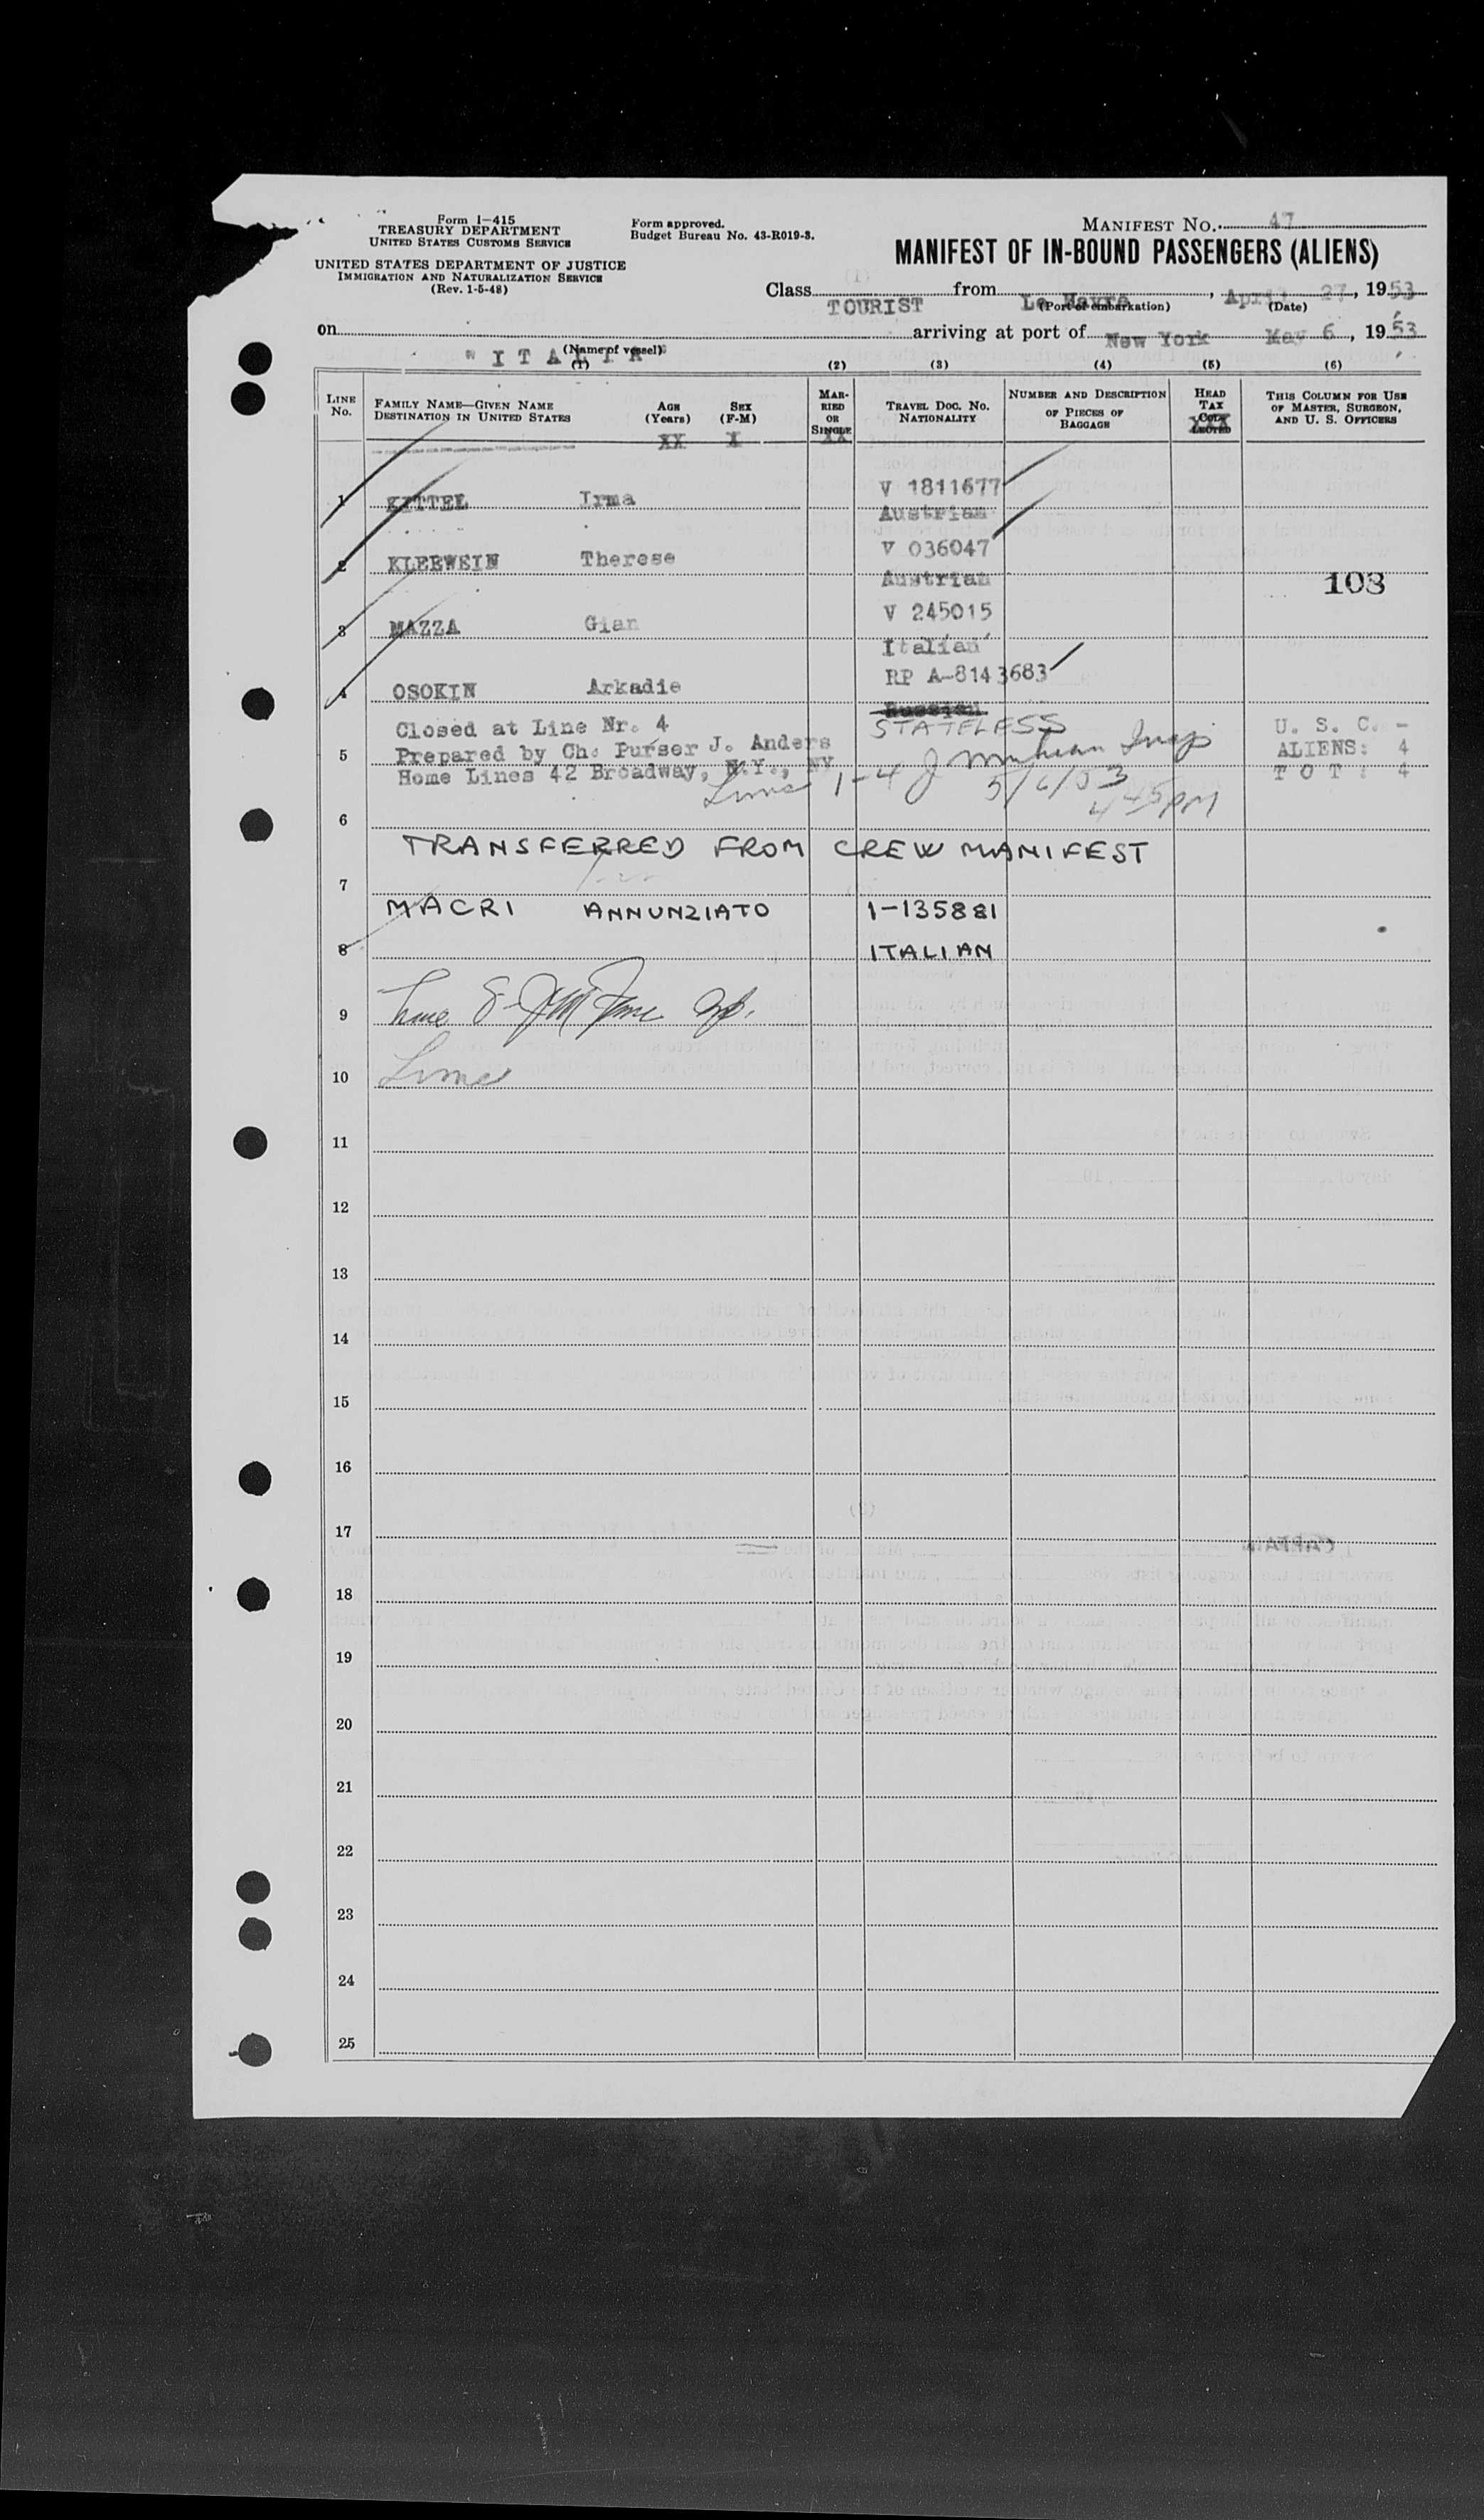 Form I-415
TREASURY DEPARTMENT
UNITED STATES CUSTOMS SERVICE
UNITED STATES DEPARTMENT OF JUSTICE
IMMIGRATION AND NATURALIZATION SERVICE
(Rev. 1-5-48)
Form approved.
Budget Bureau No. 43-R019-3.
MANIFEST NO. 47
MANIFEST OF IN-BOUND PASSENGERS (ALIENS)
Class TOURIST from Le Havre, April 27, 1953
(Port of embarkation) (Date)
on "ITALIA" arriving at port of New York May 6, 1953
(Name of vessel)
(1) (2) (3) (4) (5) (6)
LINE NO.
FAMILY NAME—GIVEN NAME
DESTINATION IN UNITED STATES
AGE (Years)
SEX (F-M)
MARRIED OR SINGLE
TRAVEL DOC. NO. NATIONALITY
NUMBER AND DESCRIPTION OF PIECES OF BAGGAGE
HEAD TAX COLLECTED
THIS COLUMN FOR USE OF MASTER, SURGEON, AND U. S. OFFICERS
XX X XX XXX
1 KITTEL Irma V 1811677
Austrian
2 KLEBWEIN Therese V 036047
Austrian
108
3 MAZZA Gian V 245015
Italian
4 OSOKIN Arkadie RP A-8143683
Russian
STATELESS
Closed at Line Nr. 4 U. S. C. -
5 Prepared by Ch. Purser J. Anders ALIENS: 4
Home Lines 42 Broadway, N.Y., NY T O T : 4
Lines 1-4 J Insp
5/6/53
445PM
6
TRANSFERRED FROM CREW MANIFEST
7
MACRI ANNUNZIATO 1-135881
8 ITALIAN
9 Line 8
10 Line
11
12
13
14
15
16
17
18
19
20
21
22
23
24
25